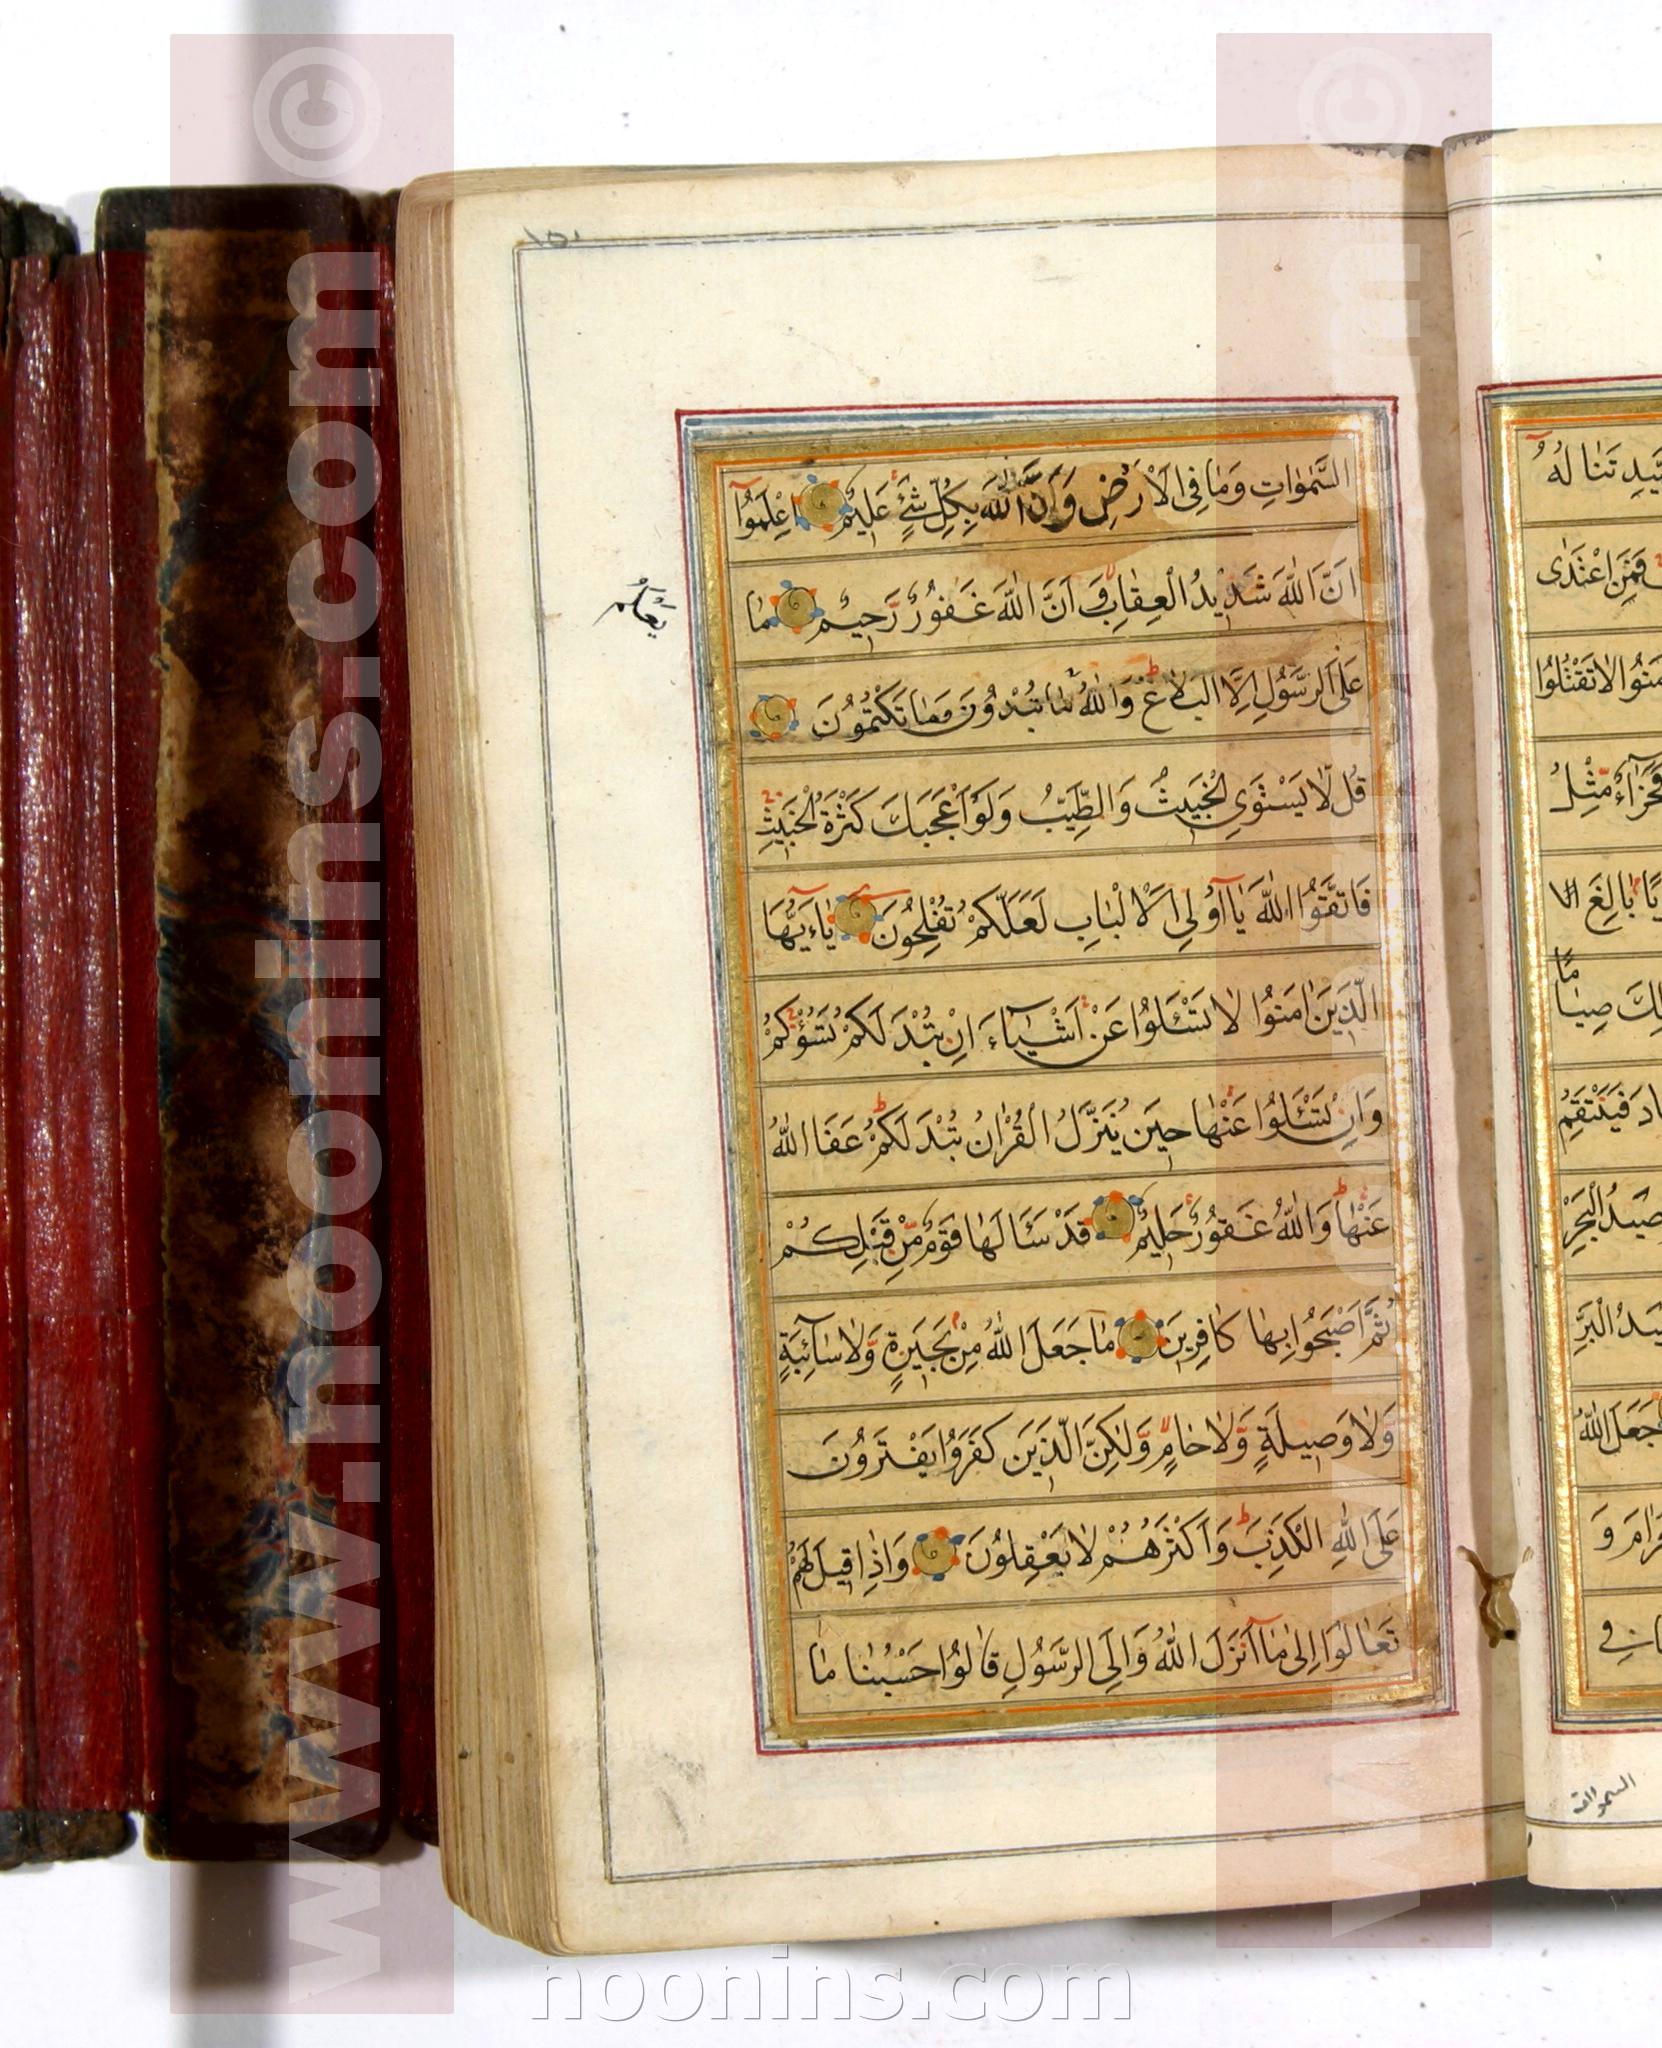 السَّمٰوٰاتِ وَمٰا فِی الْاَرْضِ وَاَنَّ اللّٰهَ بِكُلِّ شَیْءٍ عَلٖیمٌ اِعْلَمُوٓا
اَنَّ اللّٰهَ شَدٖیدُ الْعِقٰابِ وَ اَنَّ اللّٰهَ غَفُورٌ رَّحٖیمٌ مٰا
یَعْلَمُ
عَلَی الرَّسُولِ اِلَّا الْبَلٰاغُ وَاللّٰهُ مٰا تُبْدُونَ وَمٰا تَكْتُمُونَ
قُلْ لّٰا یَسْتَوِی الْخَبٖیثُ وَالطَّیِّبُ وَلَوْ اَعْجَبَكَ كَثْرَةُ الْخَبٖیثِ
فَاتَّقُوا اللّٰهَ یٰٓا اُولِی الْاَلْبٰابِ لَعَلَّكُمْ تُفْلِحُونَ یٰٓاءَیُّهَا
الَّذٖینَ اٰمَنُوا لٰا تَسْئَلُوا عَنْ اَشْیٰٓاءَ اِنْ تُبْدَ لَكُمْ تَسُؤْكُمْ
وَاِنْ تَسْئَلُوا عَنْهٰا حٖینَ یُنَزَّلُ الْقُرْاٰنُ تُبْدَ لَكُمْ عَفَا اللّٰهُ
عَنْهٰا وَاللّٰهُ غَفُورٌ حَلٖیمٌ قَدْ سَئَالَهٰا قَوْمٌ مِّنْ قَبْلِكُمْ
ثُمَّ اَصْبَحُوا بِهٰا كٰافِرٖینَ مٰا جَعَلَ اللّٰهُ مِنْ بَحٖیرَةٍ وَّلٰا سٰآئِبَةٍ
وَّلٰا وَصٖیلَةٍ وَّلٰا حٰامٍ وَّلٰكِنَّ الَّذٖینَ كَفَرُوا یَفْتَرُونَ
عَلَی اللّٰهِ الْكَذِبَ وَاَكْثَرُهُمْ لٰا یَعْقِلُونَ وَاِذٰا قٖیلَ لَهُمْ
تَعٰالَوْا اِلٰی مٰٓا اَنْزَلَ اللّٰهُ وَاِلَی الرَّسُولِ قٰالُوا حَسْبُنٰا مٰا
تَنٰالُهُٓ
فَمَنِ اعْتَدٰی
لٰا تَقْتُلُوا
فَجَزَٓاءٌ مِّثْلُ
بٰالِغَ الْ
صِیٰامًا
فَیَنْتَقِمُ
صَیْدُ الْبَحْرِ
صَیْدُ الْبَرِّ
جَعَلَ اللّٰهُ
فِی
السموات
www.noonins.com ©
noonins.com